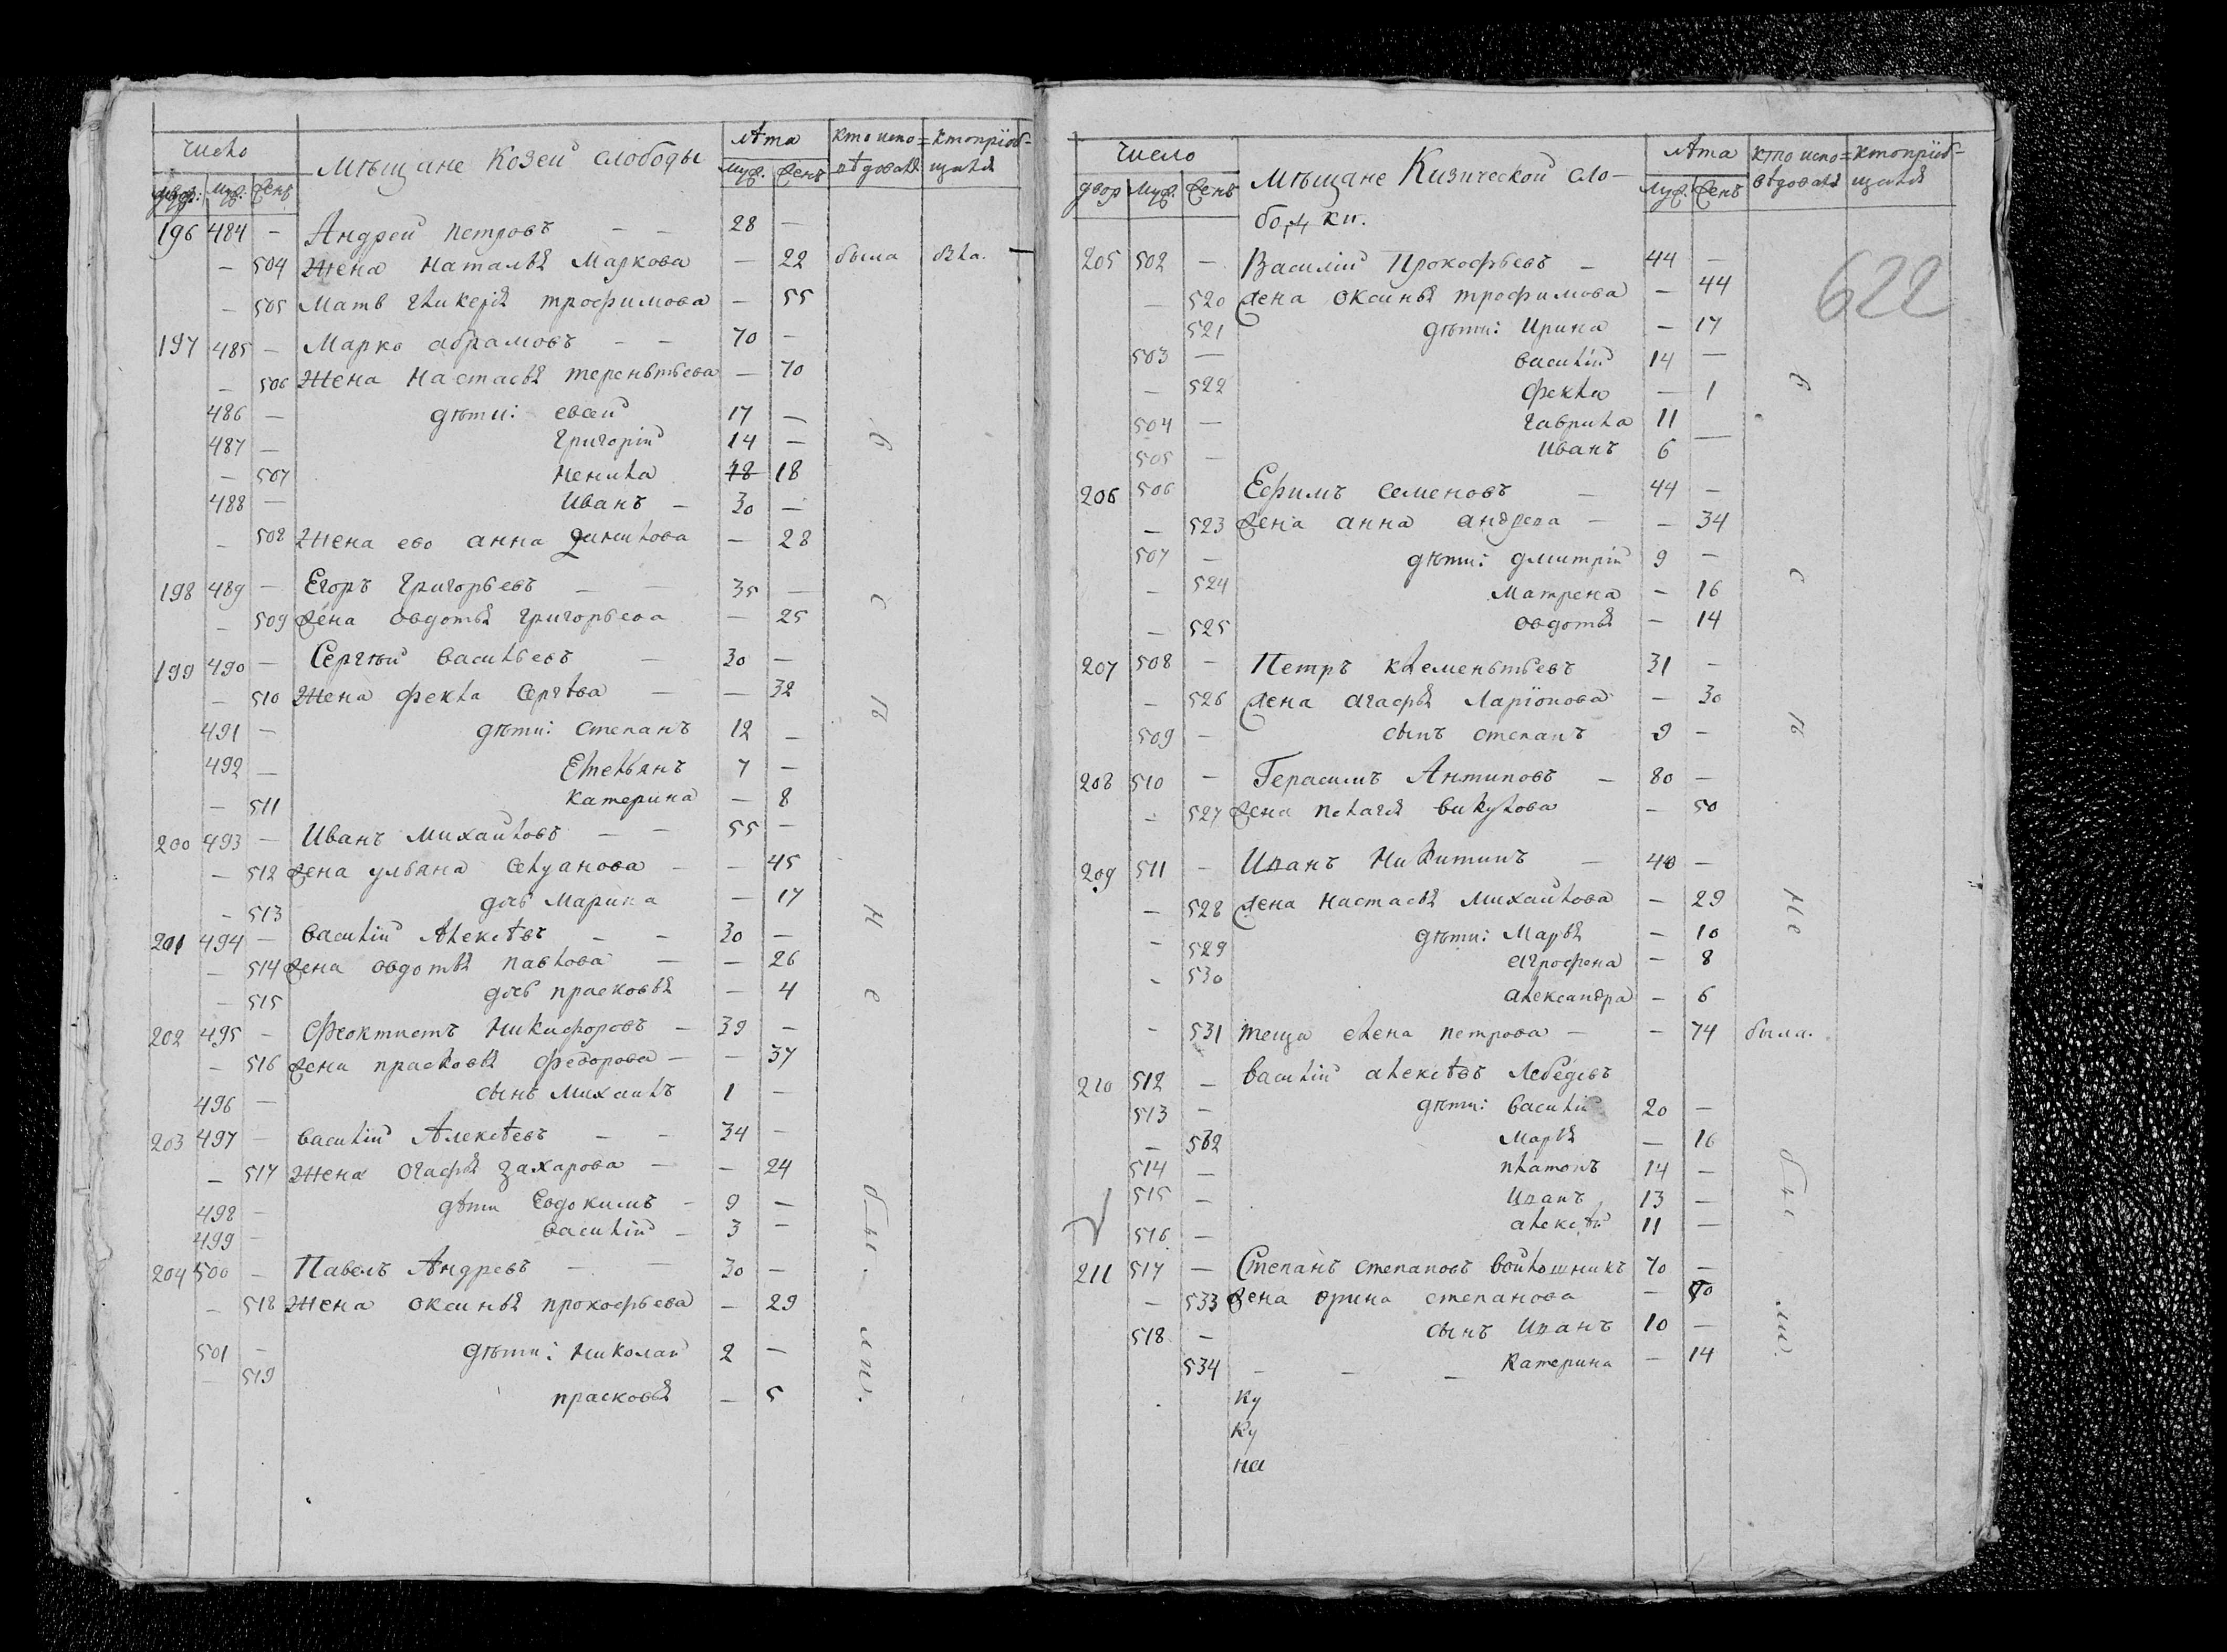 число
Мѣщане Козей слободы
лѣта
кто испо=
ктопріоб-
двор: Муж. Жен.
Муж. Женъ
вѣдовался
щался
196 484 — Андрей петровъ — — 28 —
— 504 Жена наталья Маркова — 22 была была. —
— 505 Мать гликерія трофимова — 55
197 485 — Марко абрамовъ — — 70 —
— 506 Жена настасья терентьева — 70
486 — дѣти: евсей 17 —
487 — григорій 14 —
— 507 ненила 18 18
488 — Иванъ — 30 —
— 508 Жена ево анна данилова — 28
198 489 — Егоръ григорьевъ — 35 —
— 509 жена овдотья григорьева — 25
199 490 — Сергѣй васильевъ — 30 —
— 510 Жена фекла сергѣва — — 32
491 — дѣти: степанъ 12 —
492 — Емельянъ 7 —
— 511 катерина — 8
200 493 — Иванъ Михайловъ — — 55 —
— 512 жена ульяна селуанова — — 45
— 513 дочь Марина — 17
201 494 — василій Алексѣвъ — — 30 —
— 514 жена овдотья павлова — — 26
— 515 дочь прасковья — 4
202 495 — Феоктистъ Никифоровъ — 39 —
— 516 жена прасковья федорова — — 37
496 — сынъ Михаилъ 1 —
203 497 — василій Алексѣевъ — — 34 —
— 517 Жена огафья захарова — — 24
498 — дѣти Евдокимъ — 9 —
499 — василій — 3 —
204 500 — Павелъ Андревъ — — 30 —
— 518 Жена оксинья прокофьева — 29
501 — дѣти: николай 2 —
— 519
прасковья — 5
в с в н е бы ли.
число
Мѣщане Кизической сло-
лѣта
кто испо=
ктопріоб-
двор Муж. Женъ
Муж. Женъ
вѣдовался
щался
бодки.
622
205 502 — Василій Прокофьевъ — 44 —
— 520 жена оксинья трофимова — 44
521 дѣти: Ирина — 17
503 — василій 14 —
— 522 фекла — 1
504 — гаврила 11
505 — иванъ 6 —
206 506 Ефимъ семеновъ — 44 —
— 523 жена анна андрева — — 34
507 — дѣти: дмитрій 9 —
— 524 Матрена — 16
— 525 овдотья — 14
207 508 — Петръ клементьевъ 31 —
— 526 жена агафья Ларіонова — 30
509 — сынъ степанъ 9 —
208 510 — Герасимъ Антиповъ — 80 —
— 527 жена пелагея викулова — 50
209 511 — Иванъ Никитинъ — 40 —
— 528 жена настасья Михайлова — 29
— 529 дѣти: Марья — 10
— 530 агрофена — 8
александра — 6
— 531 теща елена петрова — — 74 была.
210 512 — василій алексѣвъ Лебедевъ
513 — дѣти: василій 20 —
— 532 Марья — 16
514 — платонъ 14 —
515 — Иванъ 13 —
516 — алексѣй 11 —
211 517 — Степанъ степановъ войлошникъ 70 —
— 533 жена орина степанова — 50
518 — сынъ Иванъ 10 —
534 — — — катерина — 14
ку
ку
на
в с в не бы ли.